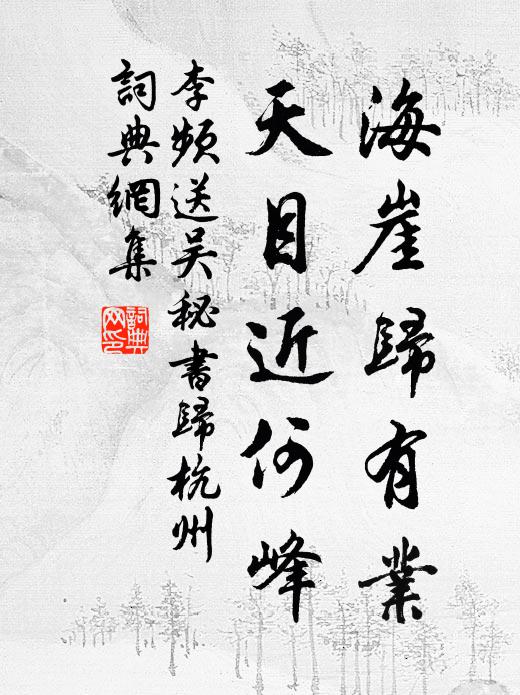 海崖歸有業
天目近何峰
李頻送吴秘書歸杭州
詞典網集
詞典網印